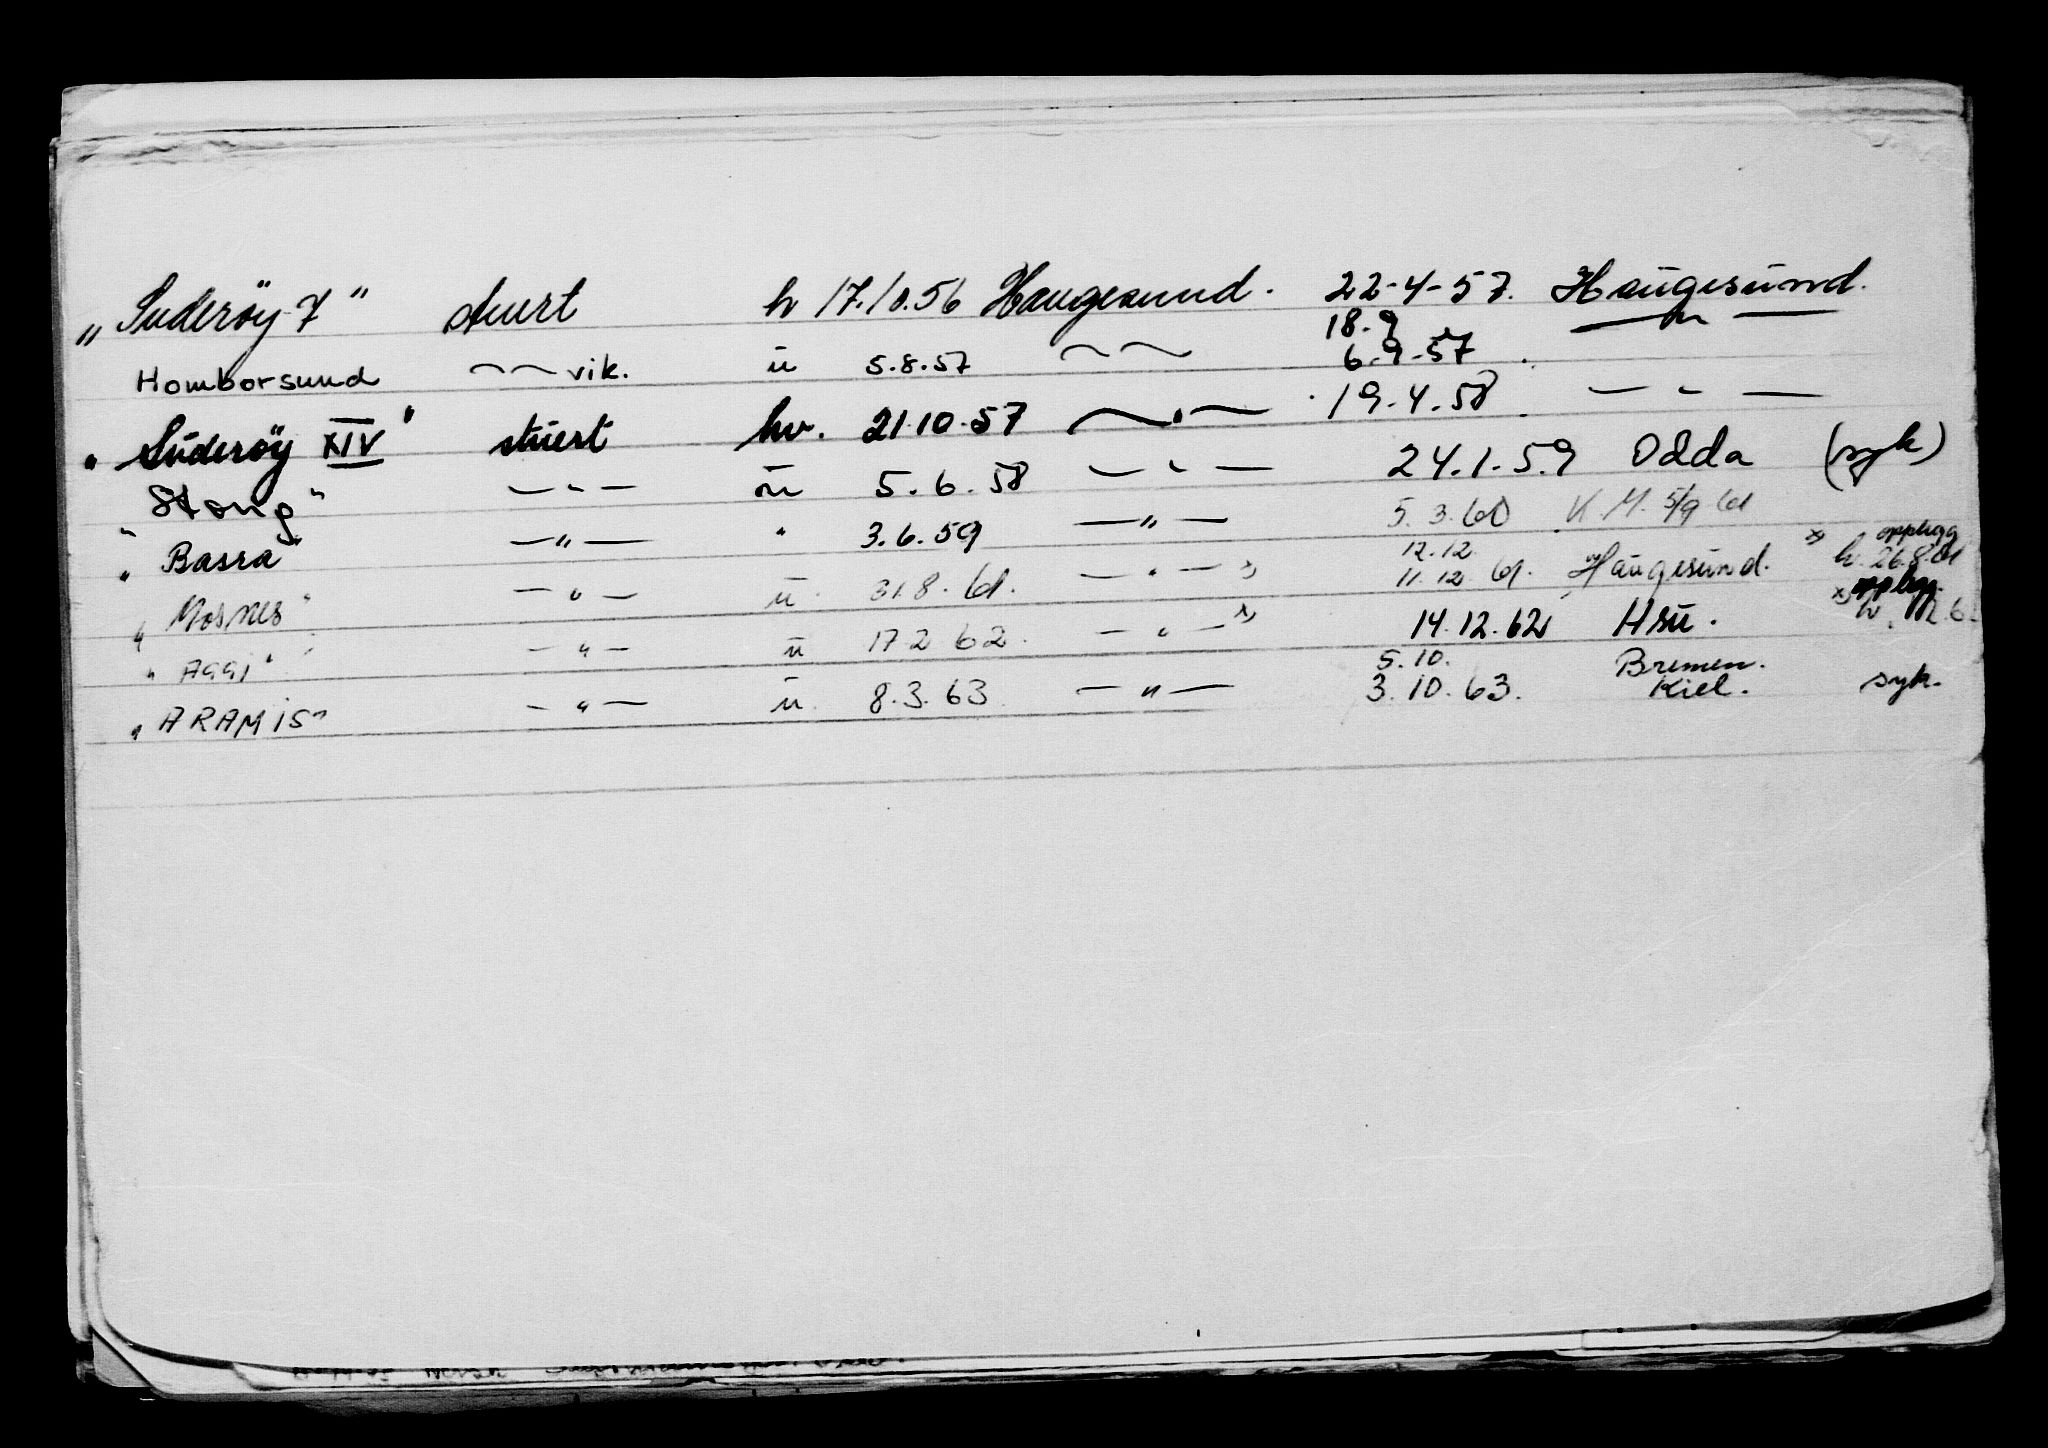 "Suderøy 7" stuert h 17.10.56 Haugesund. 22-4-57. Haugesund.
18.9
Homborsund —〃— vik. u 5.8.57 —〃— 6.9.57 —〃—
"Suderøy XIV" stuert hv. 21.10.57 —〃— 19.4.58 —〃—
"Stong" —〃— u 5.6.58 —〃— 24.1.59 Odda (syk)
"Basra" —〃— " 3.6.59 —〃— 5.3.60 K.M. 5/9 61
12.12 x) opplegg
"Mosnes" —〃— u. 31.8.61. —〃— x) 11.12.61. Haugesund. h. 26.8.61
x) opplegg.
"Aggi" —〃— u 17.2 62. —〃— x) 14.12.62 Hsu.
5.10. Bremen.
"ARAMIS" —〃— u. 8.3.63 —〃— 3.10.63. Kiel. syk.